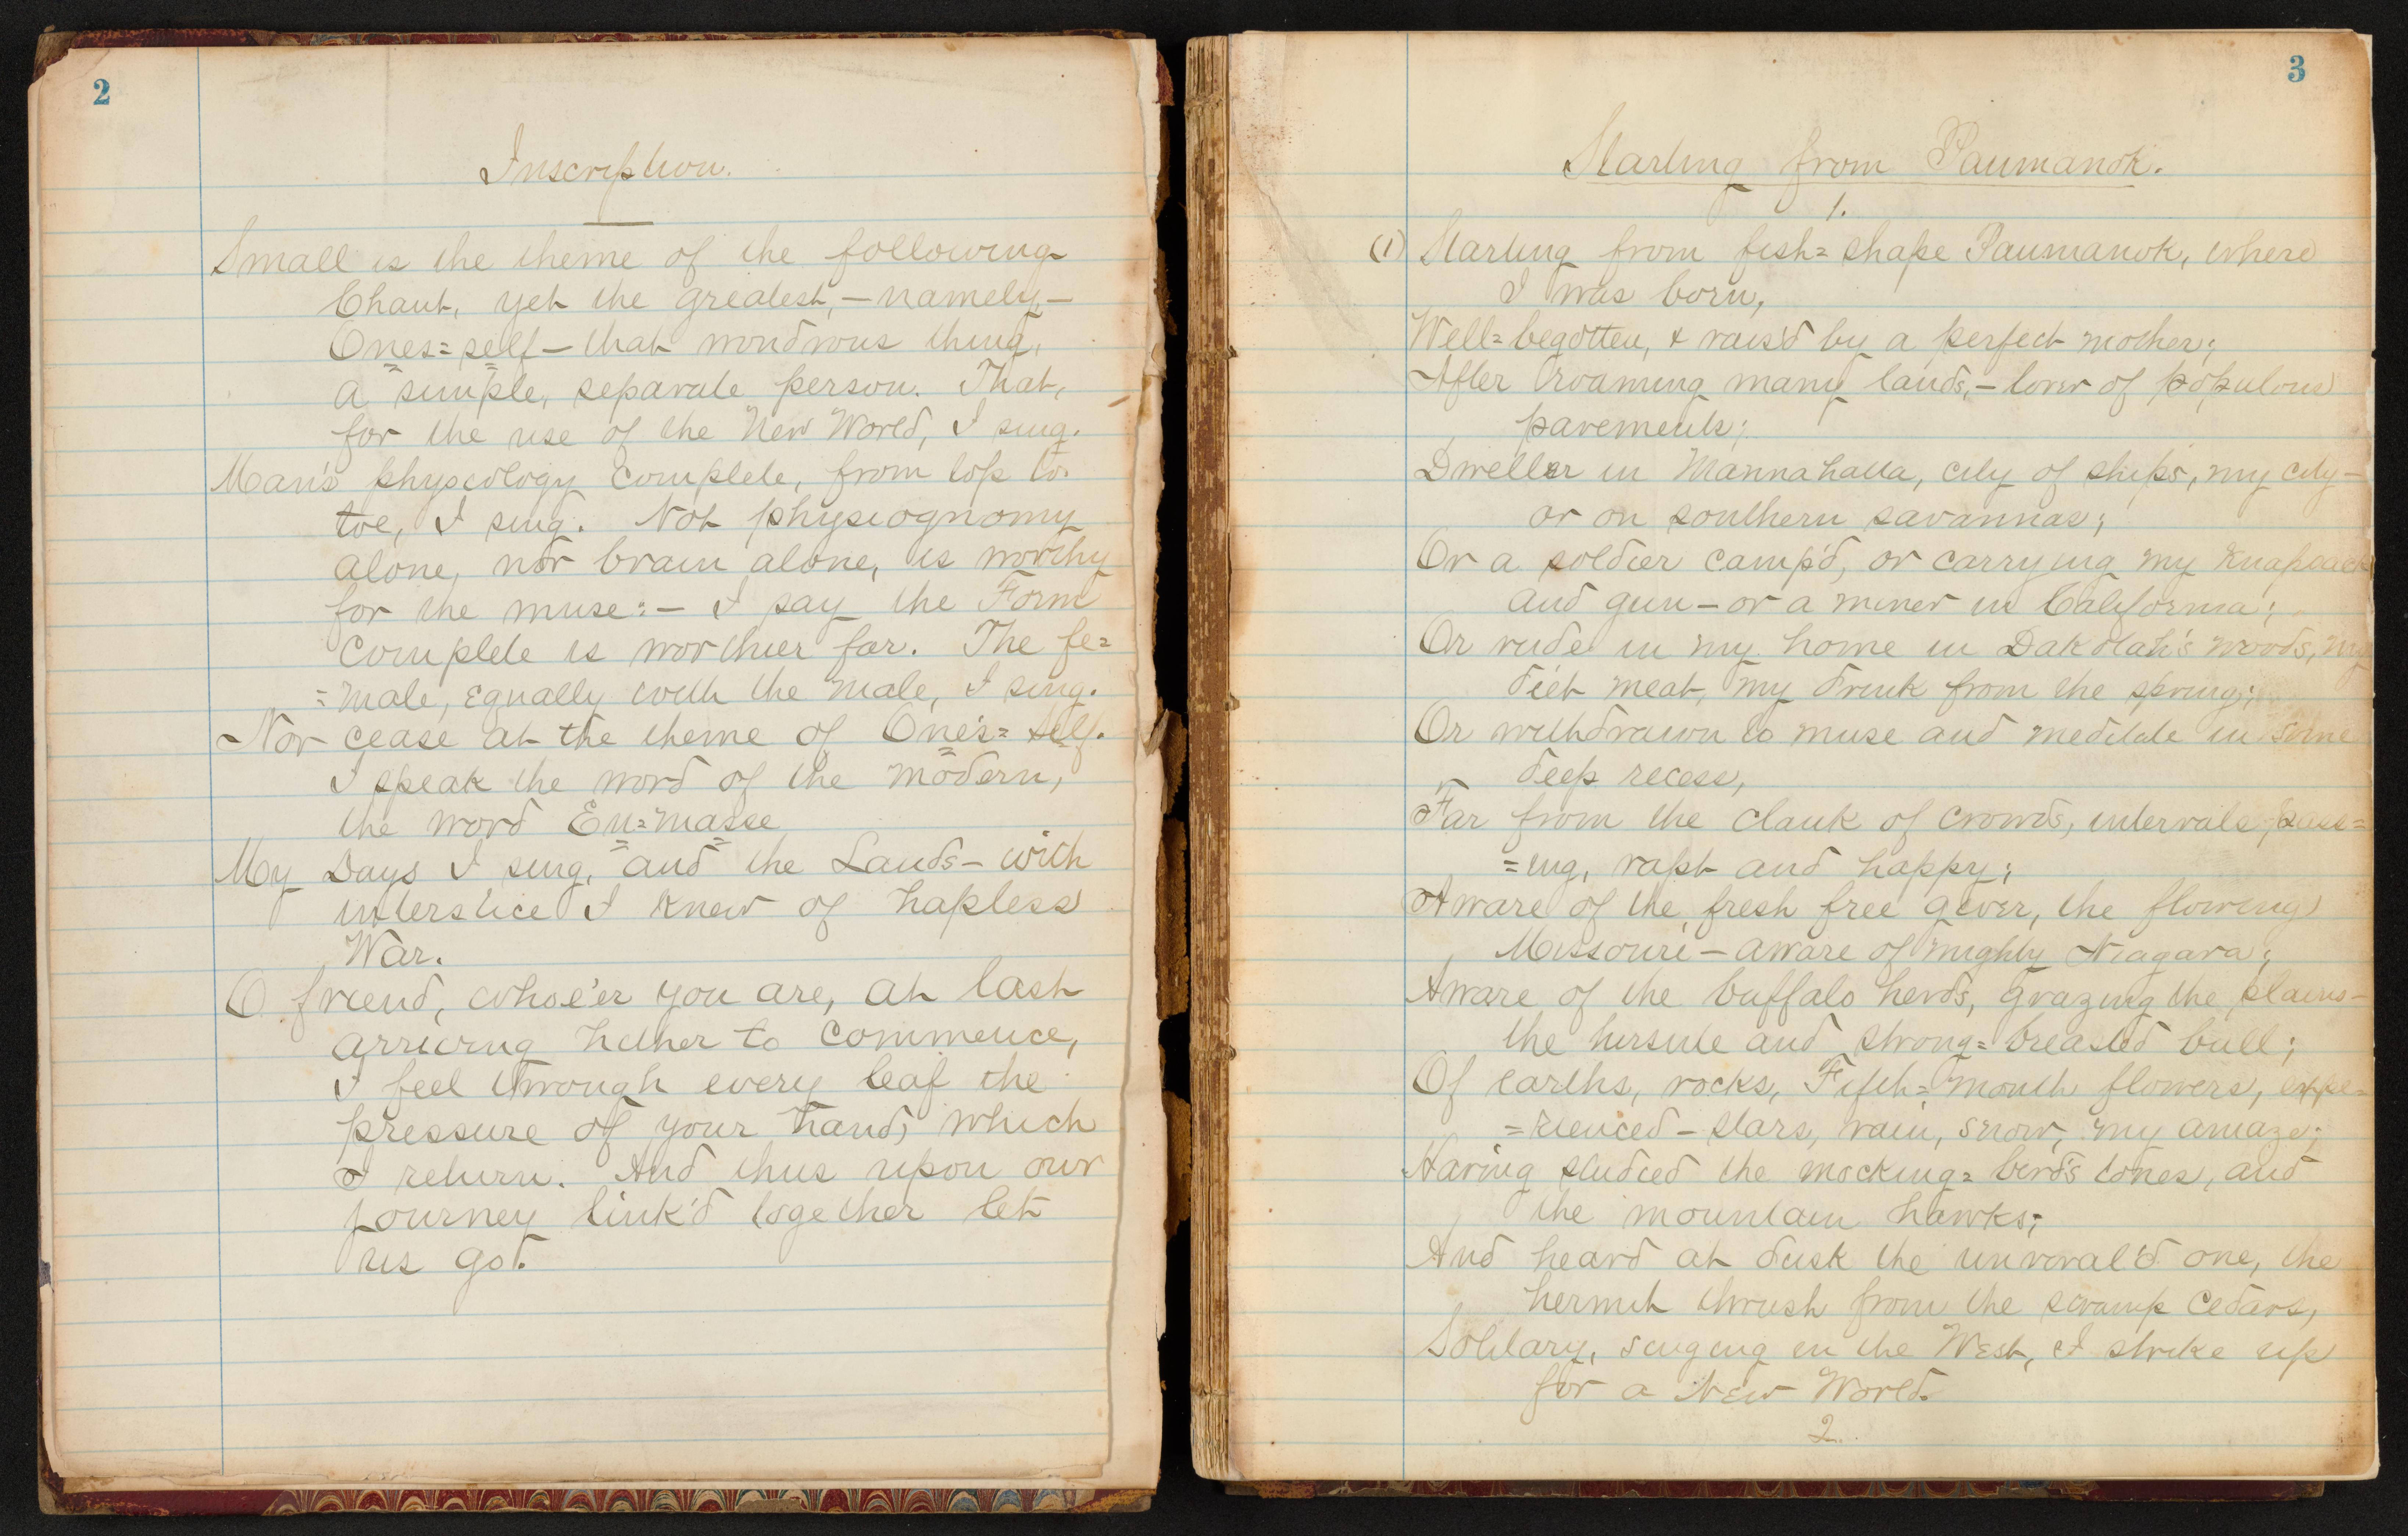 2
Inscription.
Small is the theme of the following
Chant, yet the greatest, — namely, —
Ones=self — that wondrous thing,
a simple, separate person. That,
for the use of the New World, I sing.
Man's physiology complete, from top to
toe, I sing. Not physiognomy
alone, nor brain alone, is worthy
for the muse: — I say the Form
complete is worthier far. The fe=
=male, equally with the male, I sing.
Nor cease at the theme of One's=self.
I speak the word of the modern,
the word En=masse
My Days I sing, and the Lands — with
interstice I knew of hapless
War.
O friend, whoe'er you are, at last
arriving hither to commence,
I feel through every leaf the
pressure of your hand, which
I return. And thus upon our
journey link'd together let
us go.
3
Starting from Paumanok.
1.
(1) Starting from fish=shape Paumanok, where
I was born,
Well=begotten, & rais'd by a perfect mother;
After roaming many lands, — lover of populous
pavements;
Dweller in Mannahatta, city of ships, my city —
or on southern savannas;
Or a soldier camp'd, or carrying my knapsack
and gun — or a miner in California;
Or rude in my home in Dakotah's woods, my
diet meat, my drink from the spring;
Or withdrawn to muse and meditate in some
deep recess,
Far from the clank of crowds, intervals pass=
=ing, rapt and happy;
Aware of the fresh free giver, the flowing
Missouri — aware of mighty Niagara;
Aware of the buffalo herds, grazing the plains —
the hirsute and strong=breasted bull;
Of earths, rocks, Fifth=month flowers, expe=
=rienced — stars, rain, snow, my amaze;
Having studied the mocking=bird's tones, and
the mountain hawks;
And heard at dusk the unrival'd one, the
hermit thrush from the swamp cedars,
Solitary, singing in the West, I strike up
for a New World.
2.